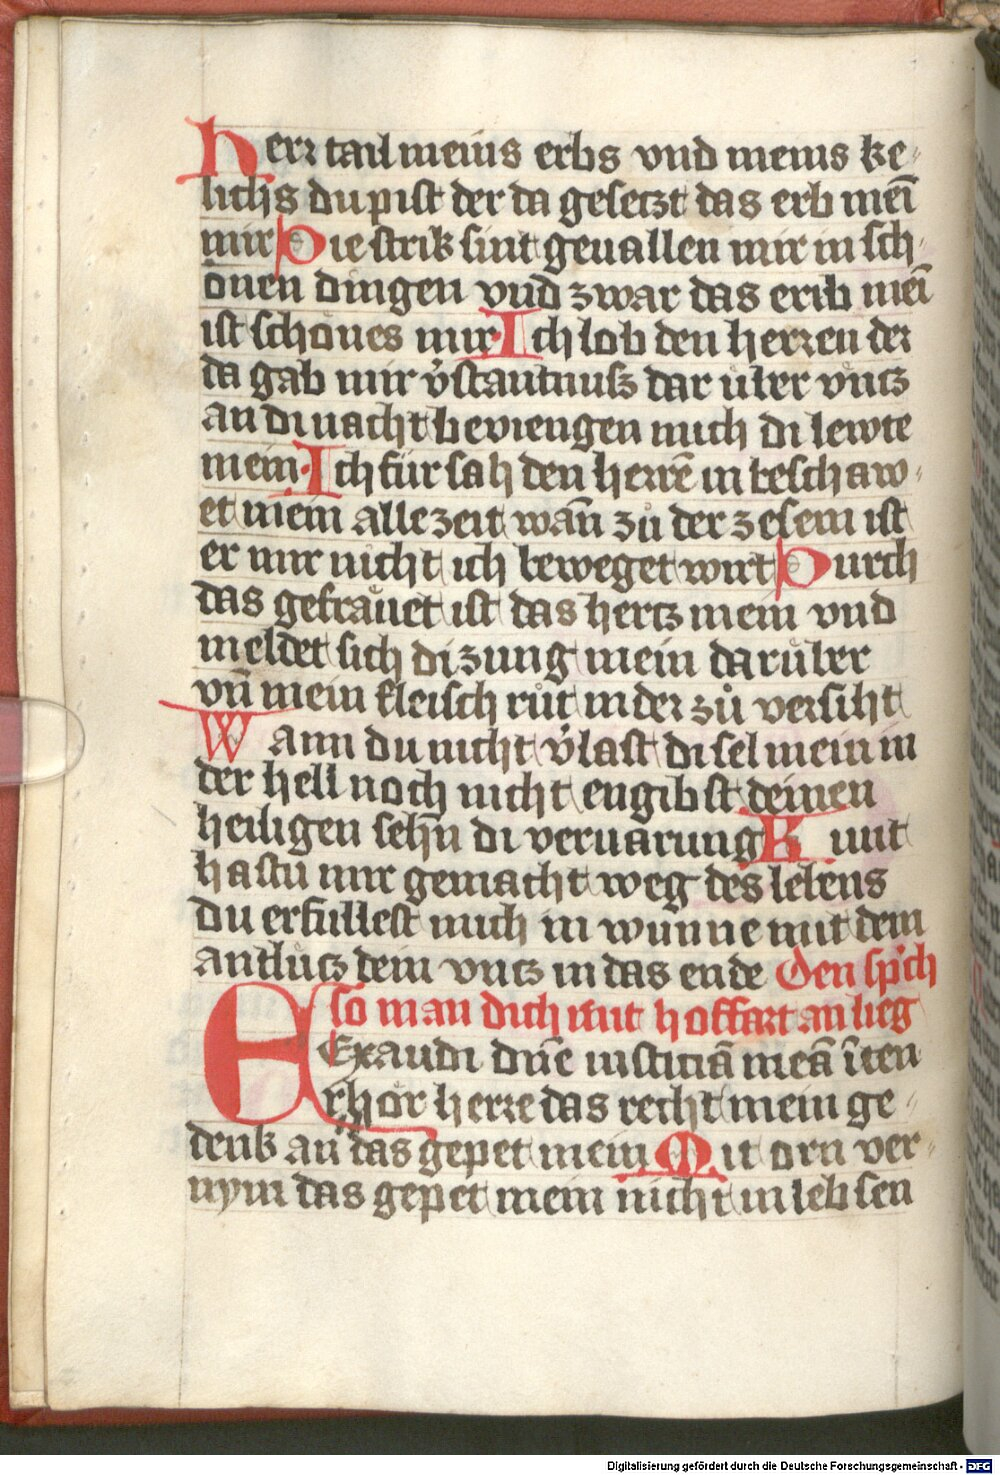 Herr tail meins erbs vnd meins ke⸗
lichs du pist der da gesetzt das erb mei̅
mir Die strik sint geuallen mir in sch⸗
onen dingen vnd zwar das erib mei̅
ist schönes mir· Ich lob den herren der
da gab mir v̓stantnuss dar uͤber vntz
an di nacht beviengen mich di lewte
mein· Ich fürsah den herre̅ in beschaw⸗
et mein allezeit wan̅ zů der zesem ist
er mir nicht ich beweget wirt Durch
das gefraͤuet ist das hertz mein vnd
meldet sich di zung mein daruͤber
vn̅ mein fleisch růt in der zů versiht
Wann du nicht v̓last di sel mein in
der hell noch nicht engibst deinen
heiligen sehn̅ di veruarung Kunt
hastu mir gemacht weg des lebens
Du erfullest mich in wunne mit dem
antlütz dein vntz in das ende Den sp̓ich
so man dich mit hoffart an lieg
Exaudi dn̅e iusticia̅ mea̅ i̅ten
Erhör herre das recht mein ge⸗
denk an das gepet mein Mit orn ver⸗
nym das gepet mein nicht in lebsen
Digitalisierung gefördert durch die Deutsche Forschungsgemeinschaft - DFG